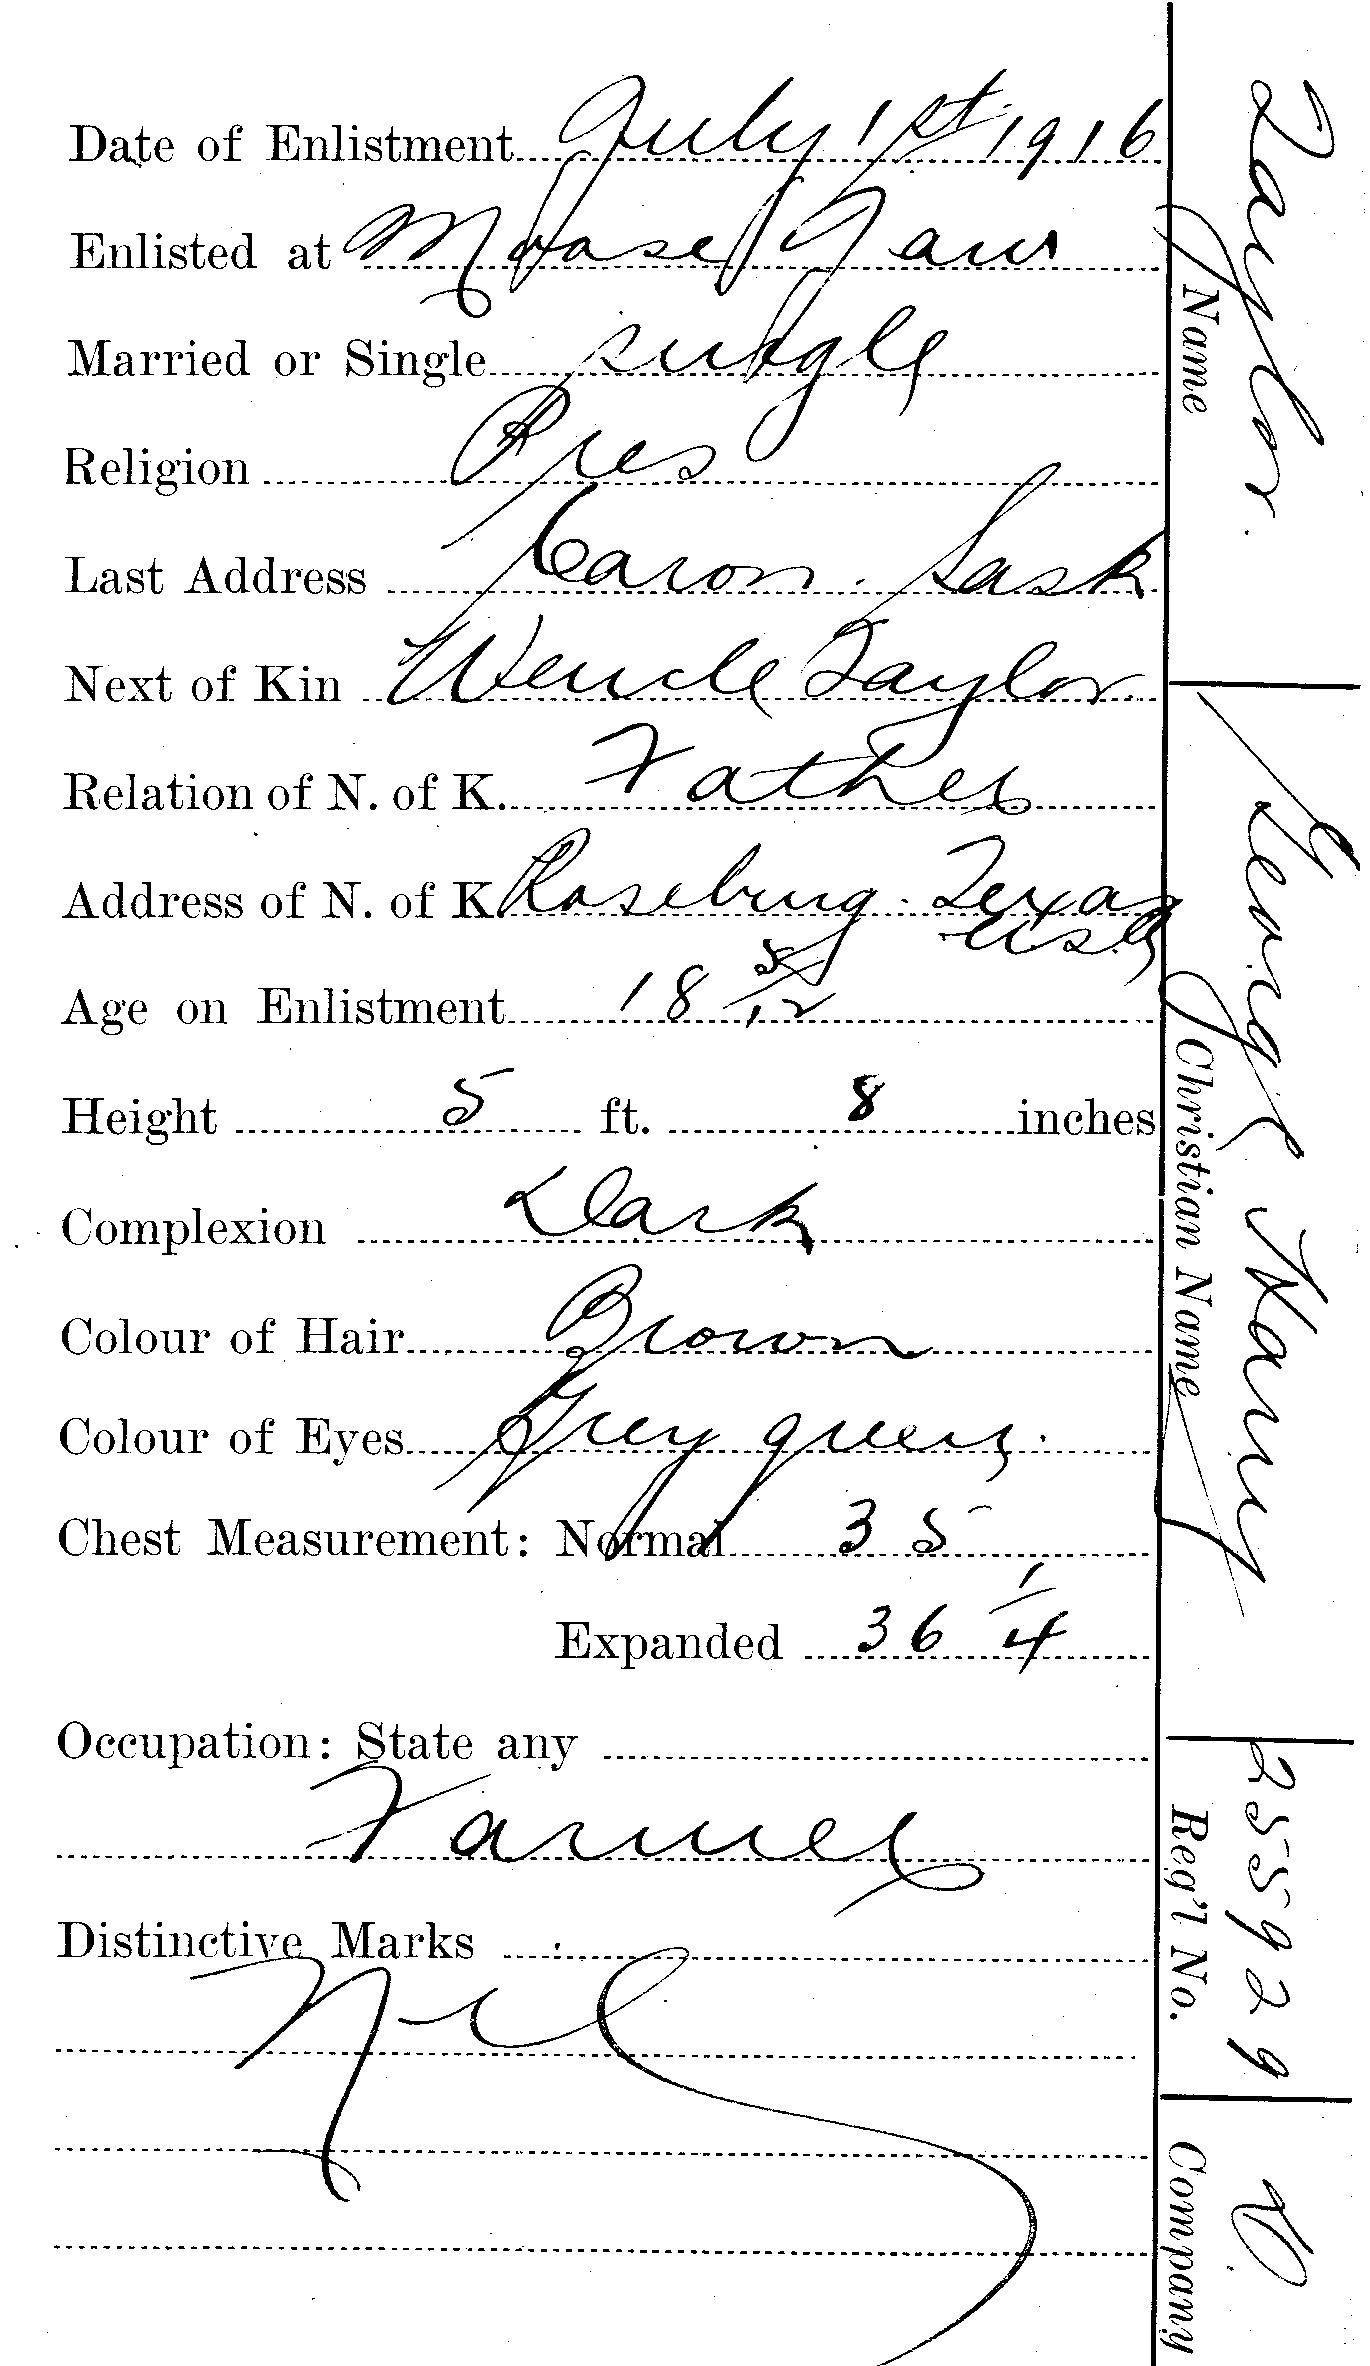 Date of Enlistment July 1st 1916
Enlisted at Moose Jaw
Married or Single single
Religion Pres
Last Address Caron. Sask
Next of Kin Taylor
Relation of N. of K. Father
Address of N. of K Roseburg. Texas
USA
Age on Enlistment 18 5/12
Height 5 ft. 8 inches
Complexion Dark
Colour of Hair Brown
Colour of Eyes Grey green.
Chest Measurement: Normal 35
Expanded 36 1/4
Occupation: State any
Farmer
Distinctive Marks
Nil
Taylor.
Name
George Harry
Christian Name
255929
Reg'l No.
D
Company